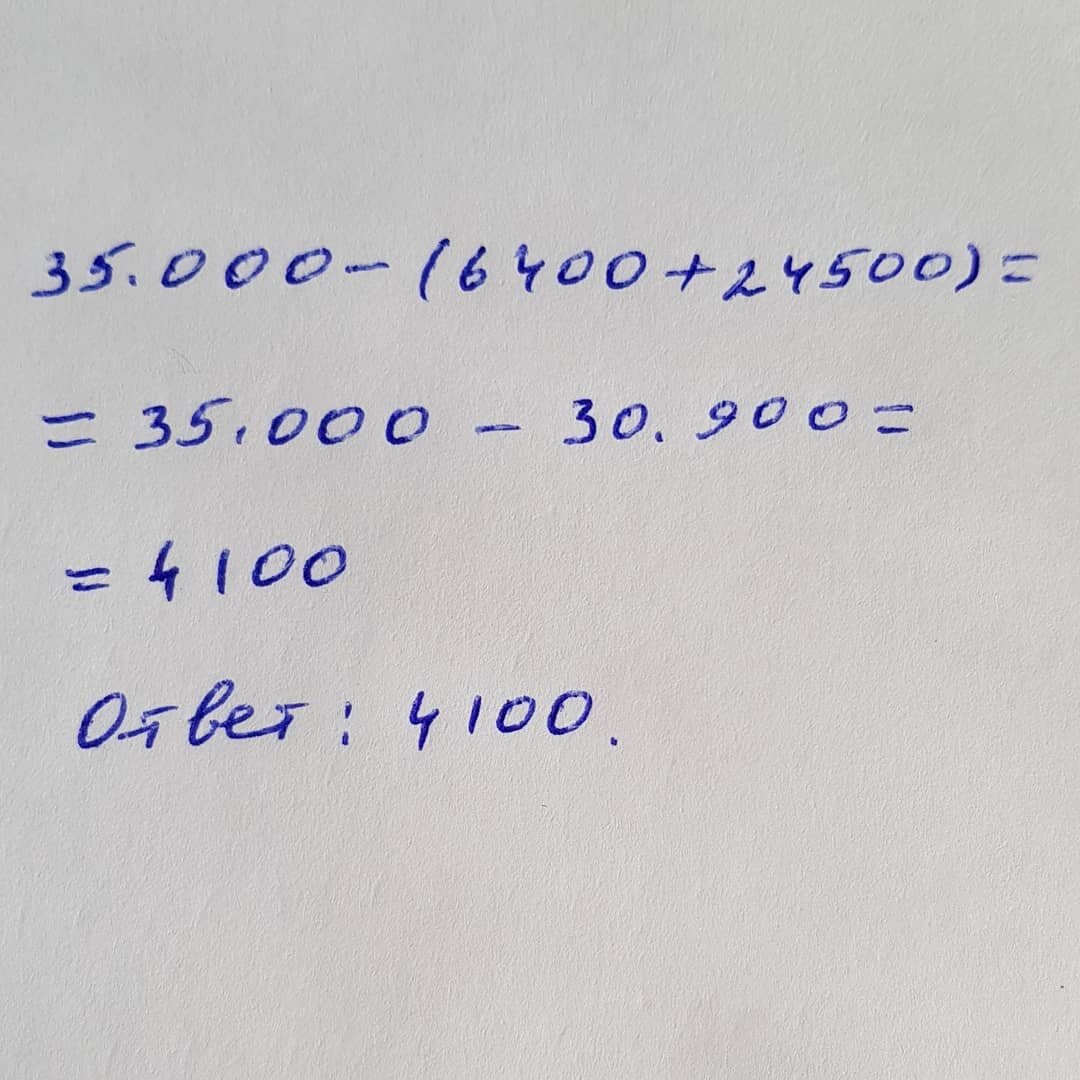 35.000-(6400+24500)=
= 35.000 - 30.900=
= 4100
Ответ: 4100.